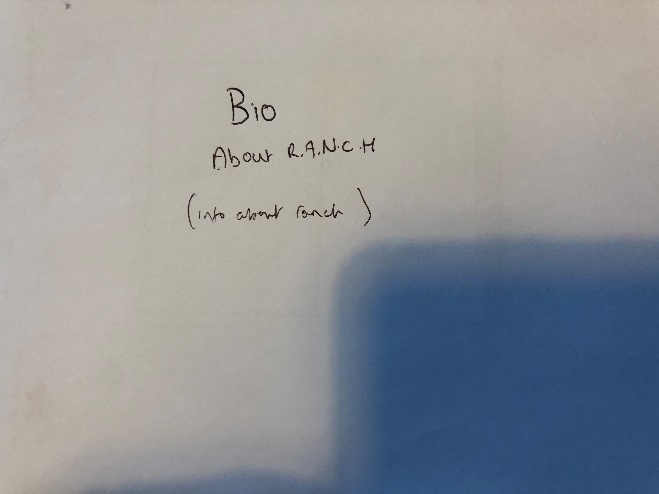 Bio
About R.A.N.C.H
(info about ranch)